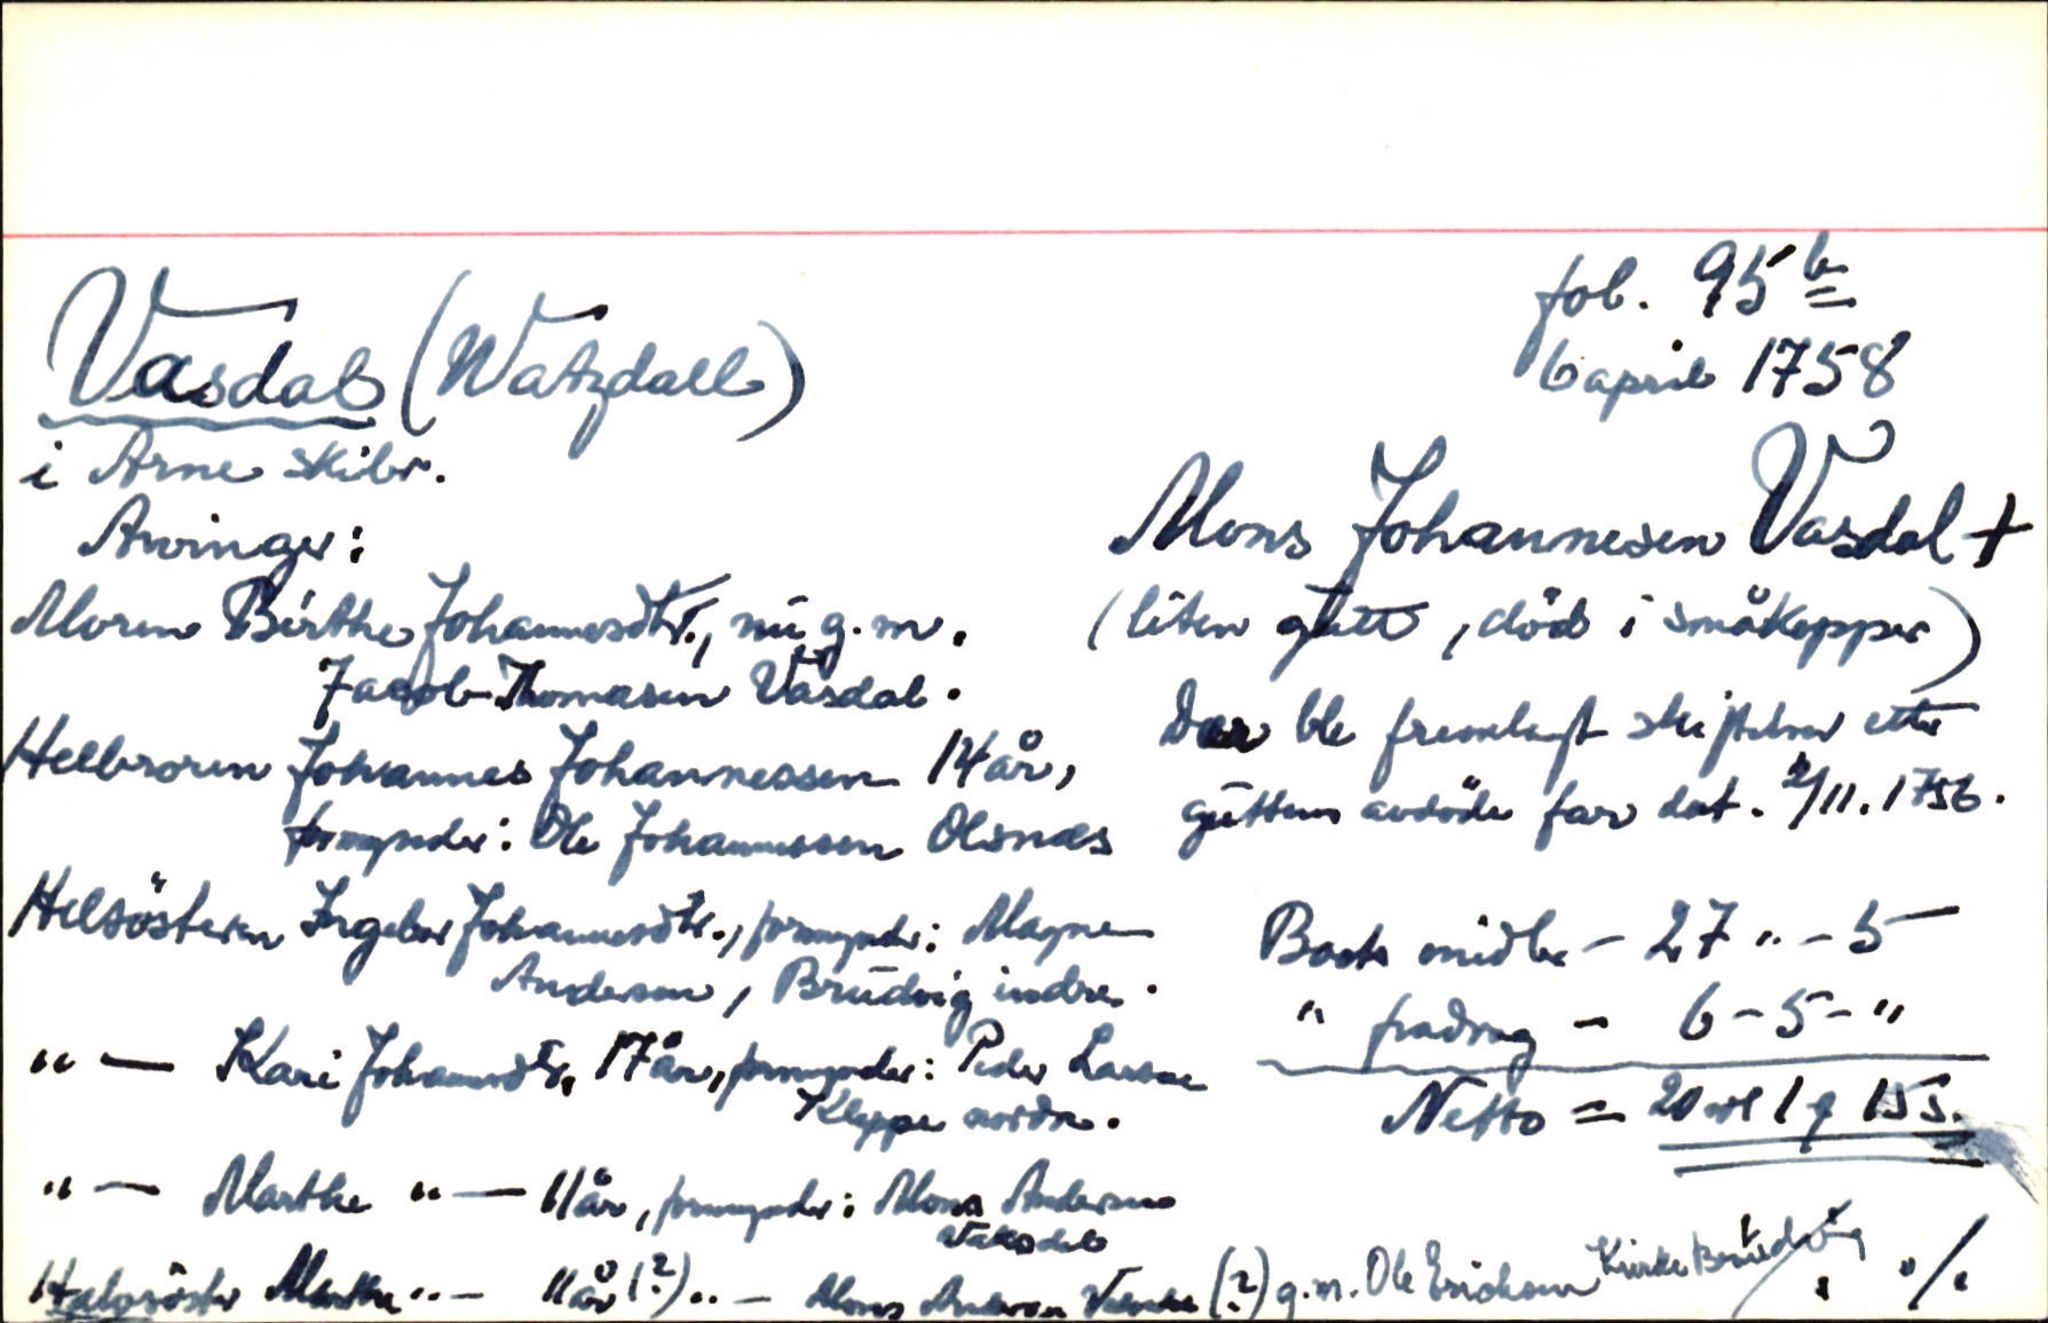 fol. 95 b
6 april 1758
Vasdal (Watzdall)
i Arne skibr.
Mons Johannesen Vasdal +
(liten gutt, död i småkopper)
Der ble fremlagt skiftebrev etter
guttens avdöde far dat. 2/11. 1756.
Boets midler - 27 " - 5
" fradrag - 6 - 5 - "
Netto = 20 rd 1 q 15 s.
Arvinger:
Moren Birthe Johannesdtr., nu g.m.
Jacob Thomasen Vasdal.
Helbroren Johannes Johannessen 14 år,
formynder: Ole Johannessen Olsnæs
Helsöstern Ingebor Johannesdtr., formynder: Magne
Andersen, Brudvig indre.
" — Kari Johannesdtr, 17 år, formynder: Peder Larsen
Kleppe nordre.
" — Marthe " — 11 år, formynder: Mons Andersen
Vaksdal
Halvsöster Marthe " — 11 år (?) " — Mons Andersen Vaksdal (?) g.m. Ole Erichsen Kirke Brudvig